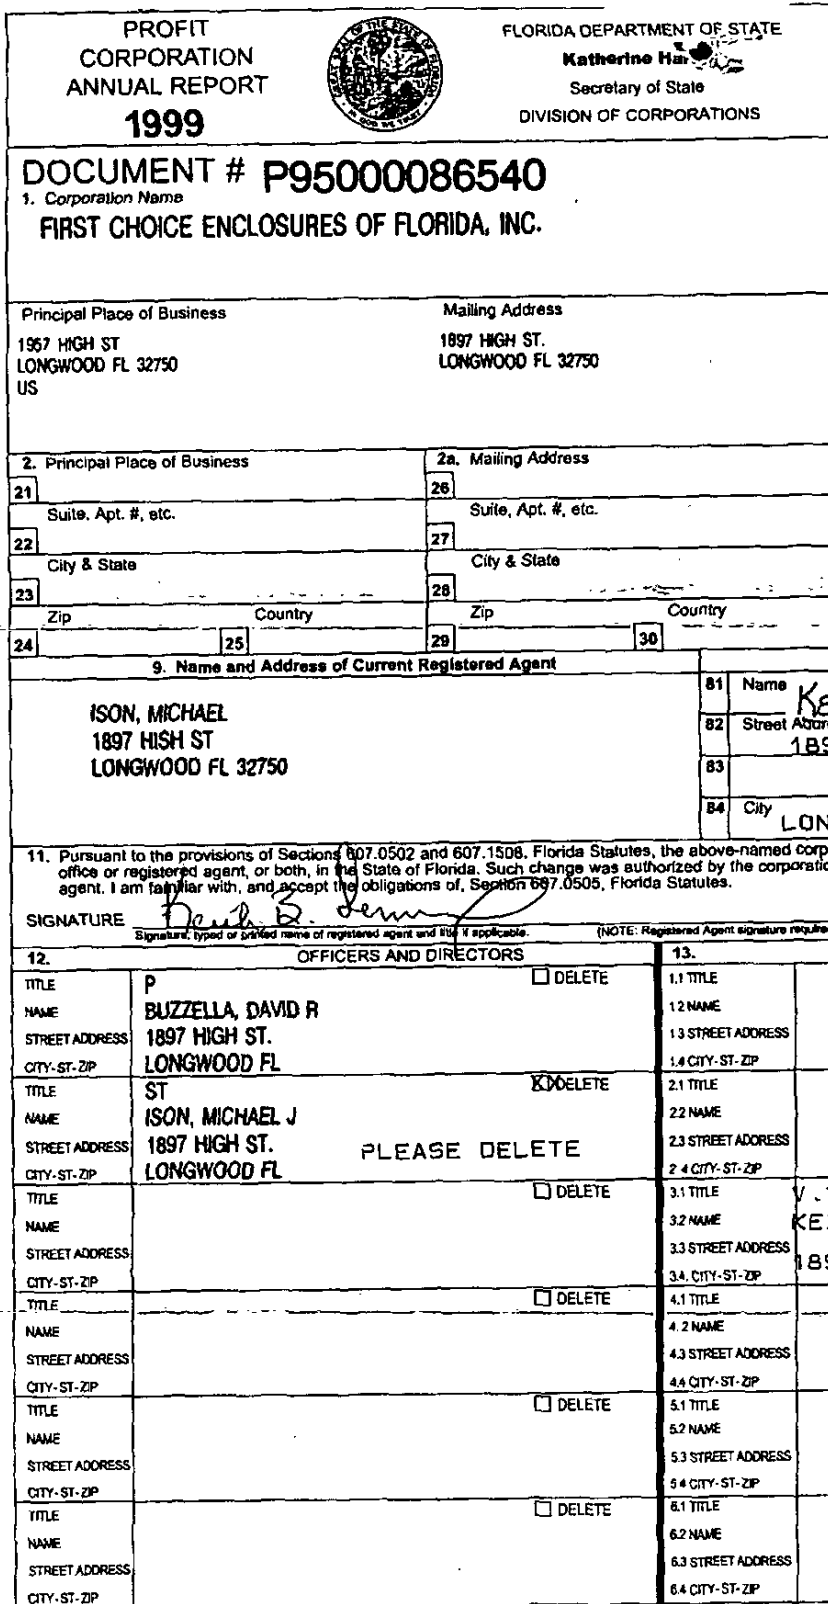 PROFIT
CORPORATION
ANNUAL REPORT
1999
FLORIDA DEPARTMENT OF STATE
Katherine Har
Secretary of State
DIVISION OF CORPORATIONS
DOCUMENT # P95000086540
1. Corporation Name
FIRST CHOICE ENCLOSURES OF FLORIDA, INC.
Principal Place of Business
Mailing Address
1957 HIGH ST
LONGWOOD FL 32750
US
1897 HIGH ST.
LONGWOOD FL 32750
2. Principal Place of Business
2a. Mailing Address
21
26
Suite, Apt. #, etc.
Suite, Apt. #, etc.
22
27
City & State
City & State
23
28
Zip
Country
Zip
Country
24
25
29
30
9. Name and Address of Current Registered Agent
ISON, MICHAEL
1897 HISH ST
LONGWOOD FL 32750
81 Name KE
82 Street Addr
189
83
84 City LON
11. Pursuant to the provisions of Sections 607.0502 and 607.1508, Florida Statutes, the above-named corp
office or registered agent, or both, in the State of Florida. Such change was authorized by the corporatio
agent. I am familiar with, and accept the obligations of, Section 607.0505, Florida Statutes.
SIGNATURE
Signature, typed or printed name of registered agent and title if applicable.
(NOTE: Registered Agent signature require
12. OFFICERS AND DIRECTORS
13.
TITLE P DELETE
NAME BUZZELLA, DAVID R
STREET ADDRESS 1897 HIGH ST.
CITY-ST-ZIP LONGWOOD FL
1.1 TITLE
1.2 NAME
1.3 STREET ADDRESS
1.4 CITY-ST-ZIP
TITLE ST XX DELETE
NAME ISON, MICHAEL J
STREET ADDRESS 1897 HIGH ST. PLEASE DELETE
CITY-ST-ZIP LONGWOOD FL
2.1 TITLE
2.2 NAME
2.3 STREET ADDRESS
2.4 CITY-ST-ZIP
TITLE DELETE
NAME
STREET ADDRESS
CITY-ST-ZIP
3.1 TITLE V.
3.2 NAME KE
3.3 STREET ADDRESS 189
3.4. CITY-ST-ZIP
TITLE DELETE
NAME
STREET ADDRESS
CITY-ST-ZIP
4.1 TITLE
4.2 NAME
4.3 STREET ADDRESS
4.4 CITY-ST-ZIP
TITLE DELETE
NAME
STREET ADDRESS
CITY-ST-ZIP
5.1 TITLE
5.2 NAME
5.3 STREET ADDRESS
5.4 CITY-ST-ZIP
TITLE DELETE
NAME
STREET ADDRESS
CITY-ST-ZIP
6.1 TITLE
6.2 NAME
6.3 STREET ADDRESS
6.4 CITY-ST-ZIP